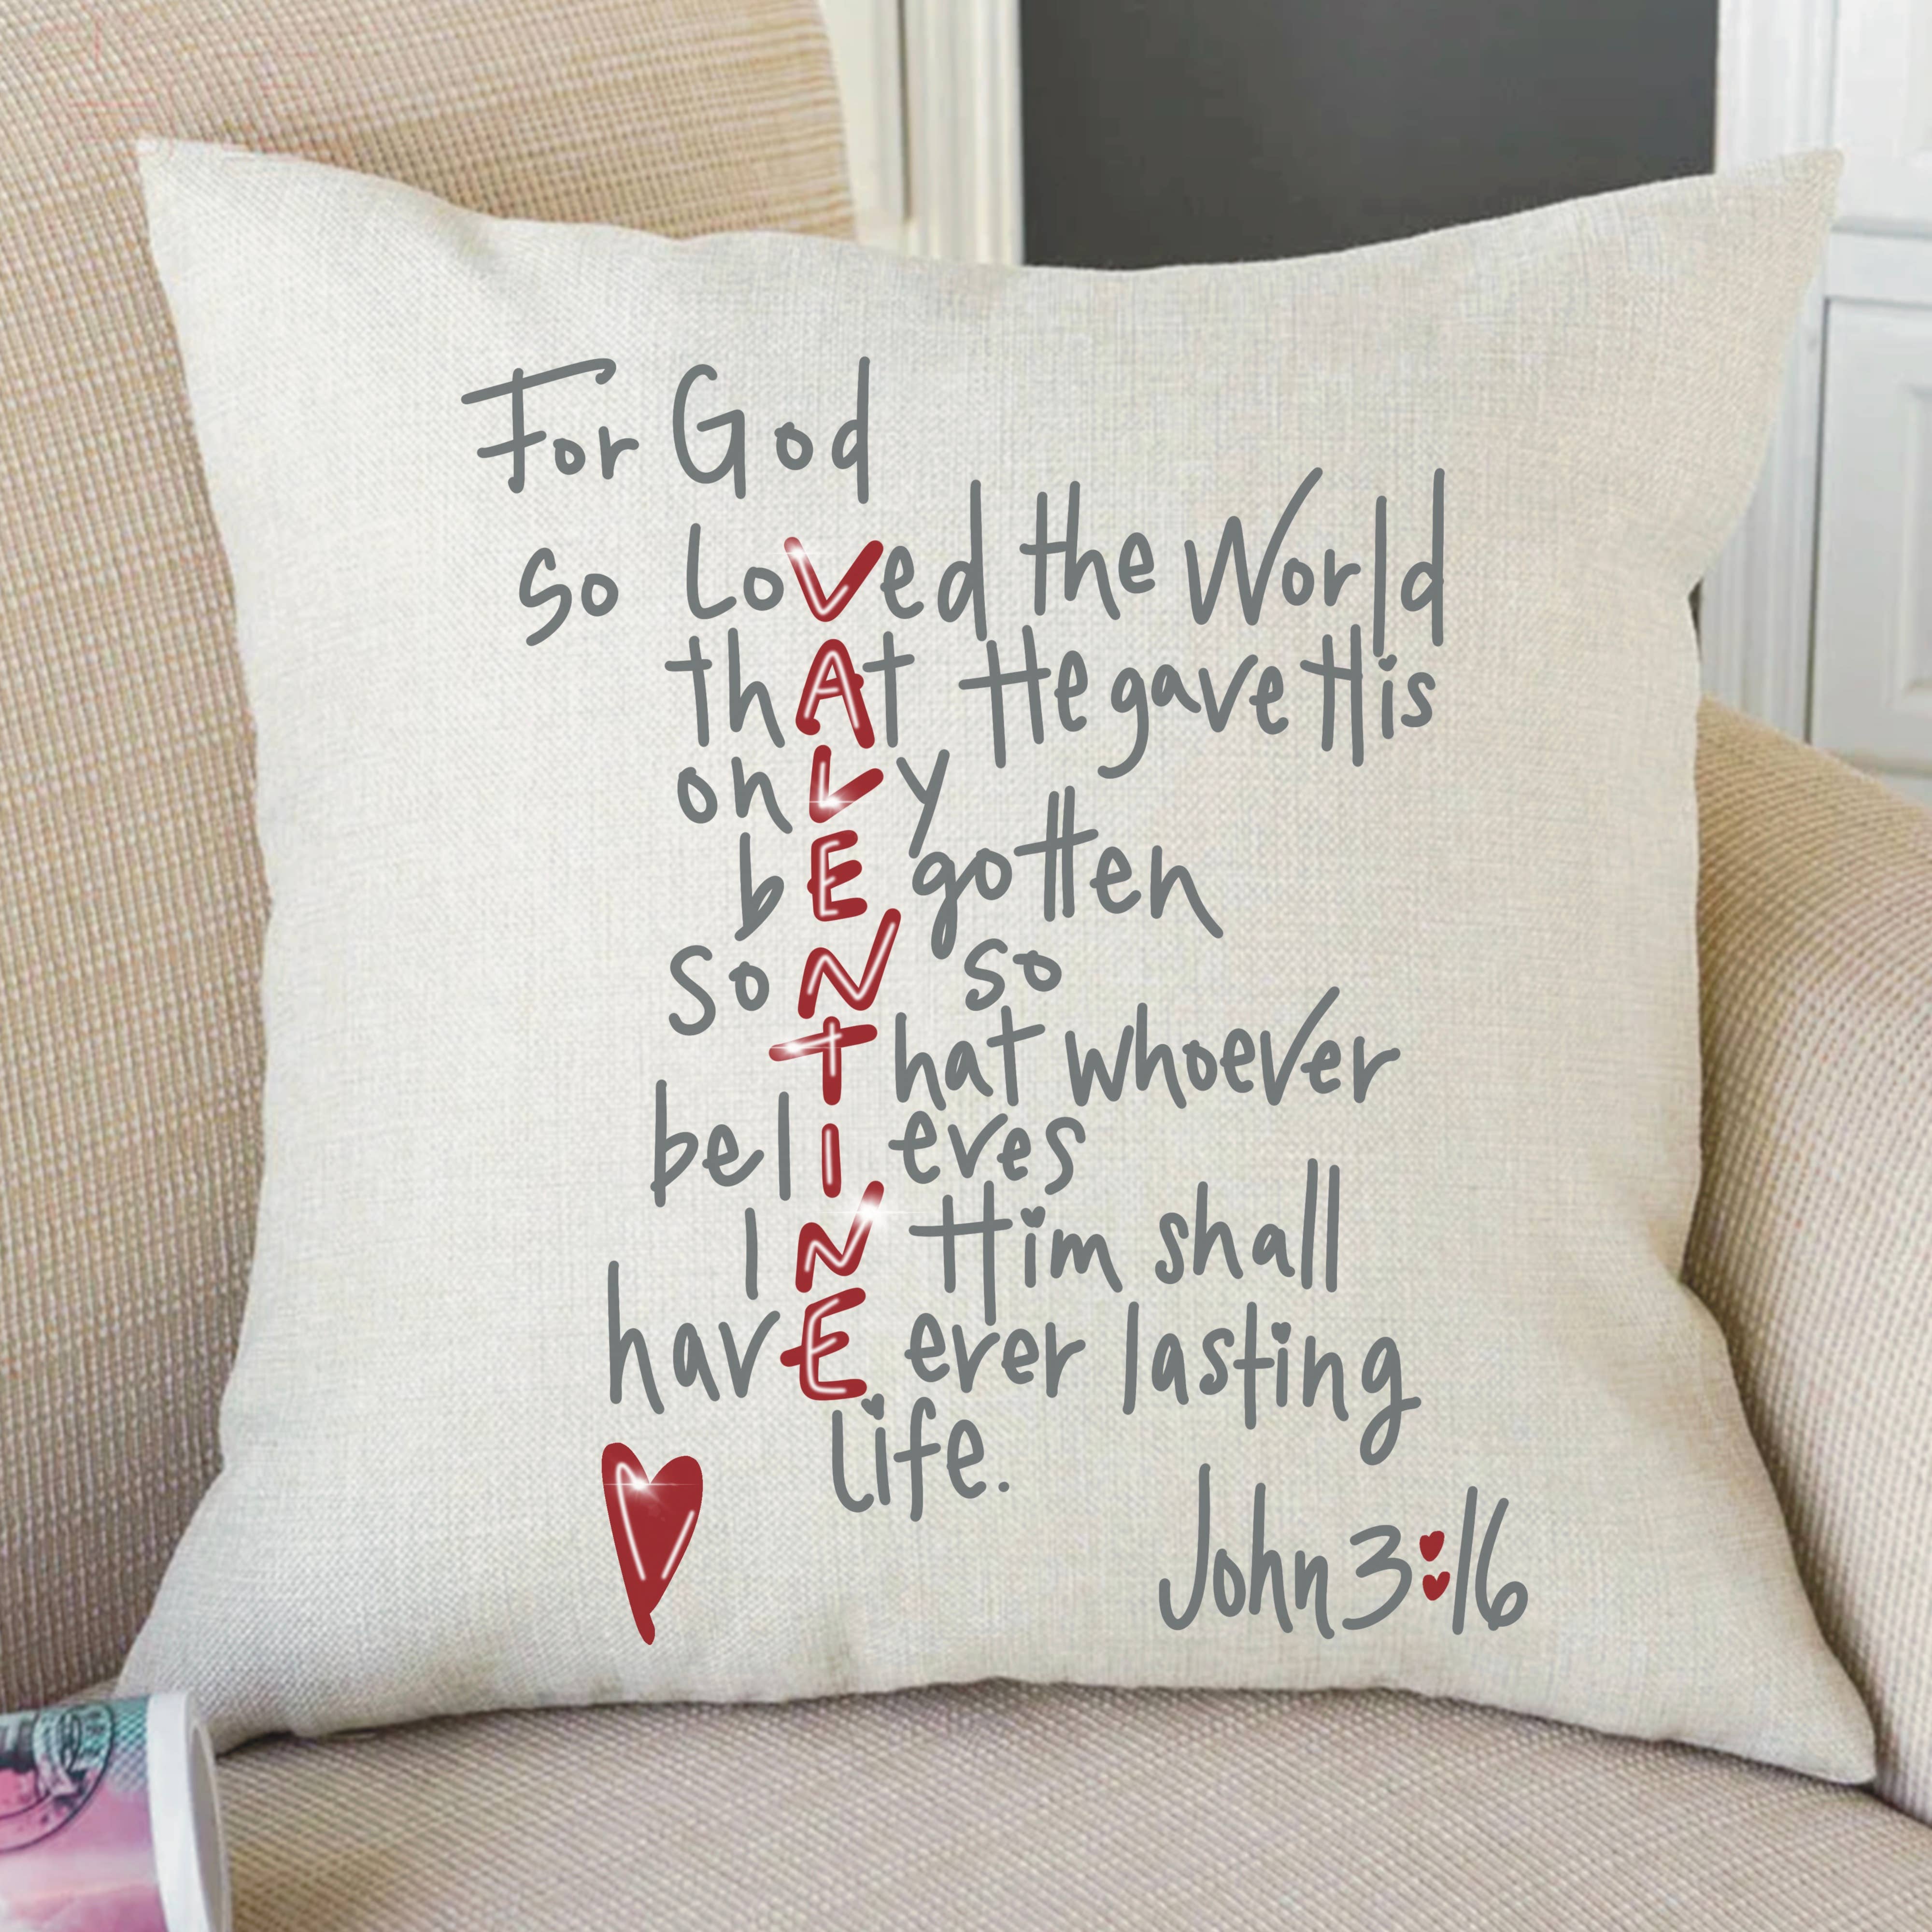 For God
so LoVed the World
thAt He gave His
onLy
bEgotten
SoN so
That whoever
belIeves
IN Him shall
havE ever lasting
life.
John 3:16